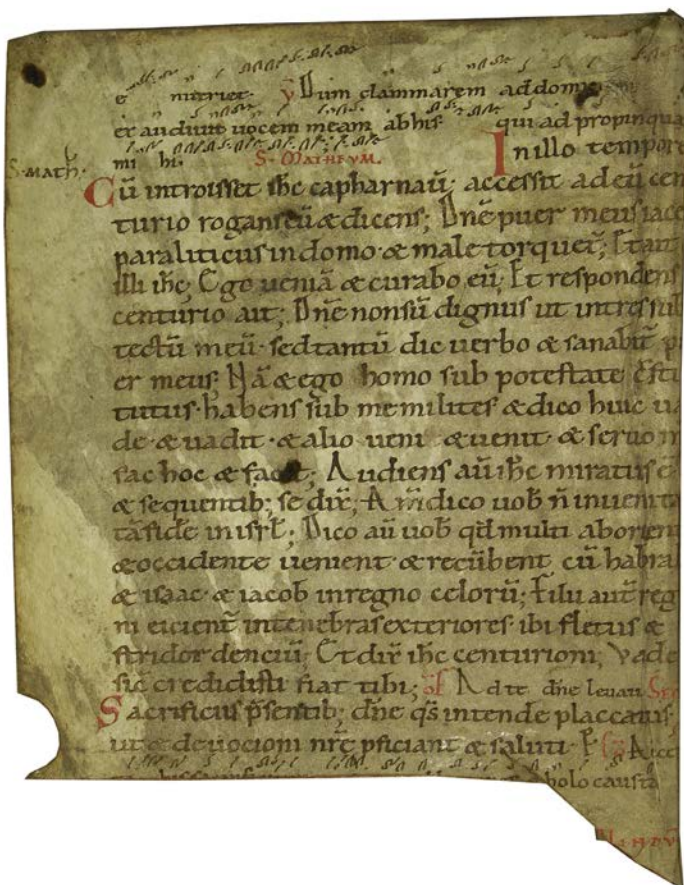 e nutriet. V Dum clammarem addomi
exaudiuit uocem meam abhis qui ad propinqua
mi hi. S. MATHEUM. In illo tempore
S. MATH.
Cū introisset ihc capharnaū; accessit adeū cen
turio roganseū & dicens; Dne puer meus iace
paraliticus in domo & male torquet; Et ait
illi ihc; Ego ueniā & curabo eū; Et respondens
centurio ait; Dne nonsū dignus ut intres sub
tectū meū sed tantū dic uerbo & sanabit p
er meus; Nā & ego homo sub potestate csti
tutus habens sub me milites & dico huic ua
de & uadit & alio ueni & uenit & seruo m
fac hoc & facit; Audiens aū ihc miratus ē
& sequentib; se dix; Am̄ dico uob n̄ inueni ta
tā fidē in isrł; Dico aū uob qđ multi aborien
& occidente uenient & recūbent cū habra
& isaac & iacob inregno celorū; Filii aut reg
ni eicient intenebras exteriores ibi fletus &
stridor denciū; Et dix ihc centurioni; Vade
sic credidisti fiat tibi; of Ad te dne leuaui SEC
Sacrificiis p̄sentib; dne q̄s intende placcatus;
ut & deuocioni nrē pficiant & saluti. P Co Acce
holocausta